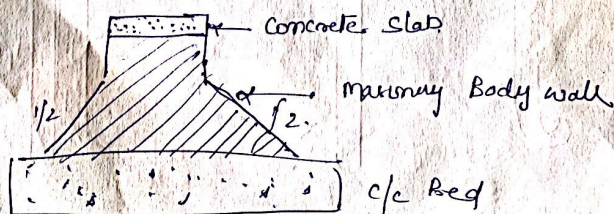 Concrete Slab
1/2
α
Masonary Body wall
2
c/c Bed